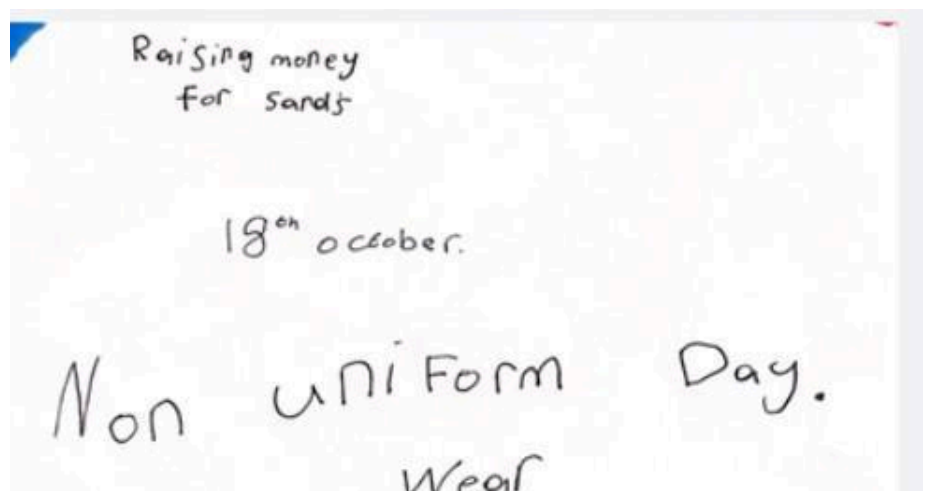 Raising money
for Sands
18th october.
Non uniform Day.
Wear